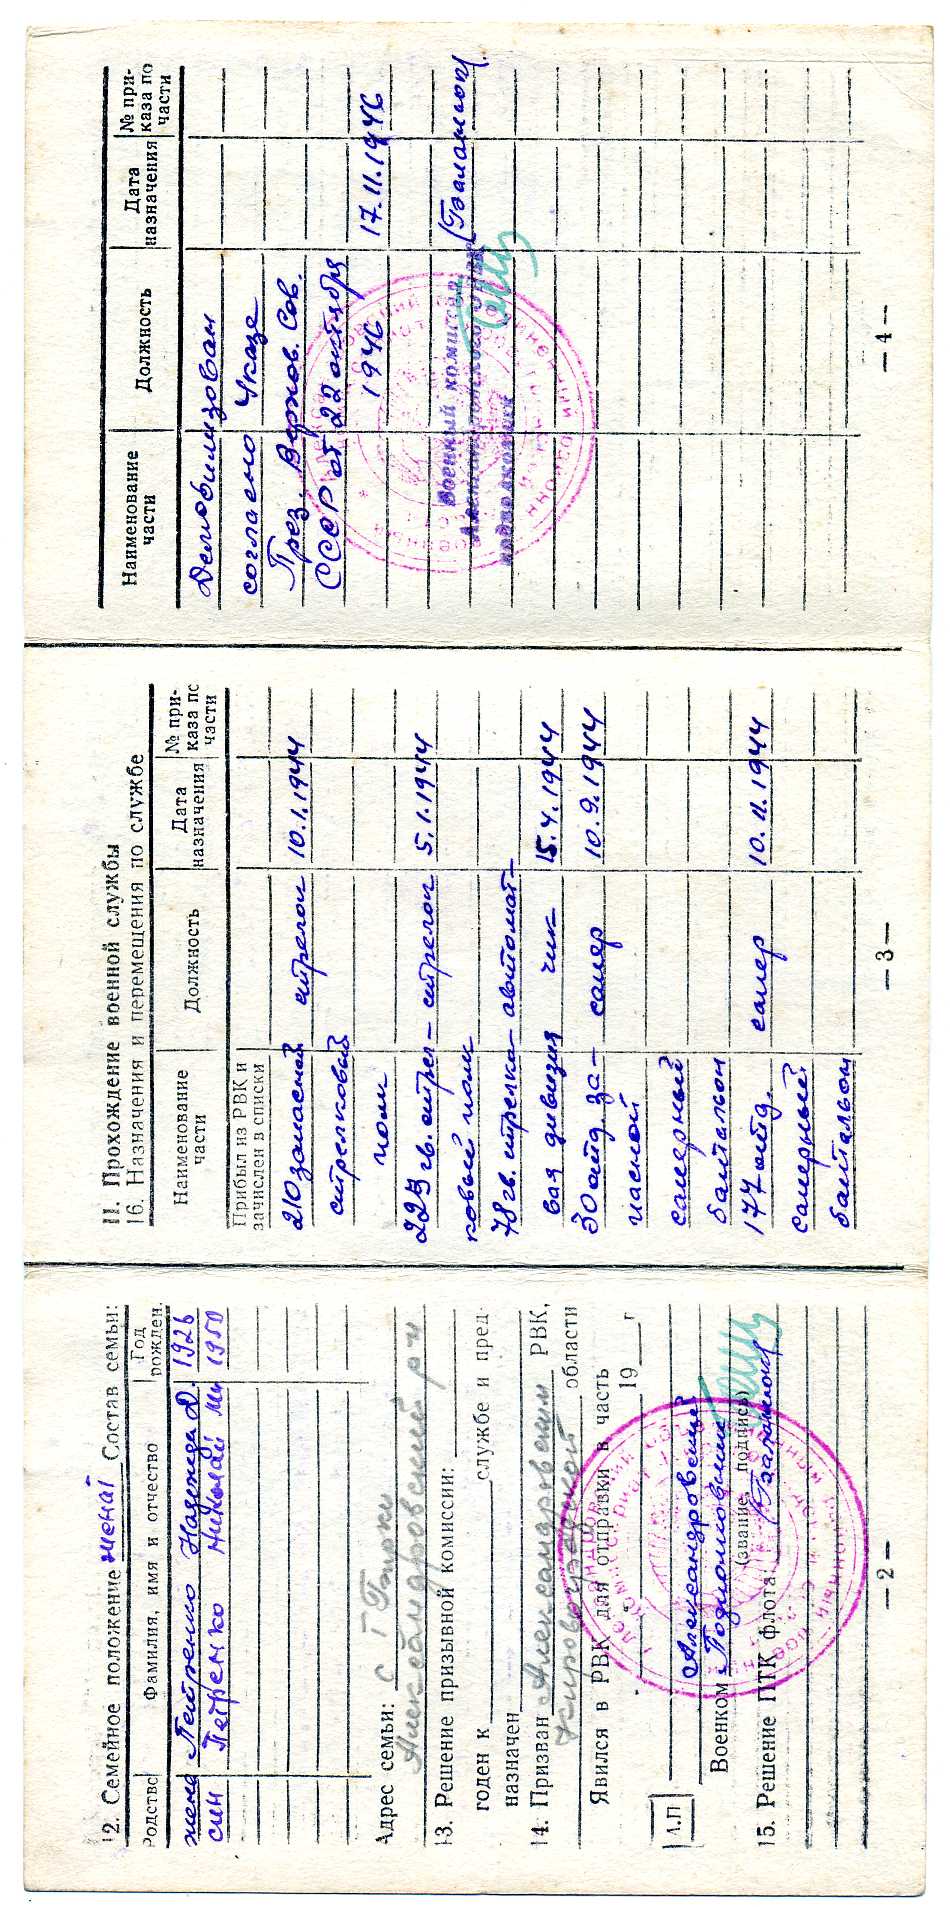 12. Семейное положение женат Состав семьи:
Родство Фамилия, имя и отчество Год рожден.
жена Петренко Надежда Д. 1926
син Петренко Николай Ми 1950
Адрес семьи: с
Александровский р-н
13. Решение призывной комиссии:
годен к службе и пред-
назначен
14. Призван Александровским РВК,
Кировоградской области
Явился в РВК для отправки в часть
19 г
М.П
Александровский
Военком Подполковник
(звание, подпись)
15. Решение ПТК флота:
— 2 —
II. Прохождение военной службы
16. Назначения и перемещения по службе
Наименование части Должность Дата назначения № при-каза по части
Прибыл из РВК и
зачислен в списки
210 запасной стрелок 10.1.1944
стрелковый
полк
225 гв. стрел- стрелок 5.1.1944
ковый полк
78 гв. стрелко- автомат-
вая дивизия чик 15.4.1944
30 отд. за- сапер 10.9.1944
пасной
саперный
батальон
177 отд. сапер 10.11.1944
саперный
батальон
— 3 —
Наименование части Должность Дата назначения № при-каза по части
Демобилизован
согласно Указа
През. Верхов. Сов.
СССР от 22 октября
1946 17.11.1946
Военный комиссар
Александровского
подполковник
— 4 —